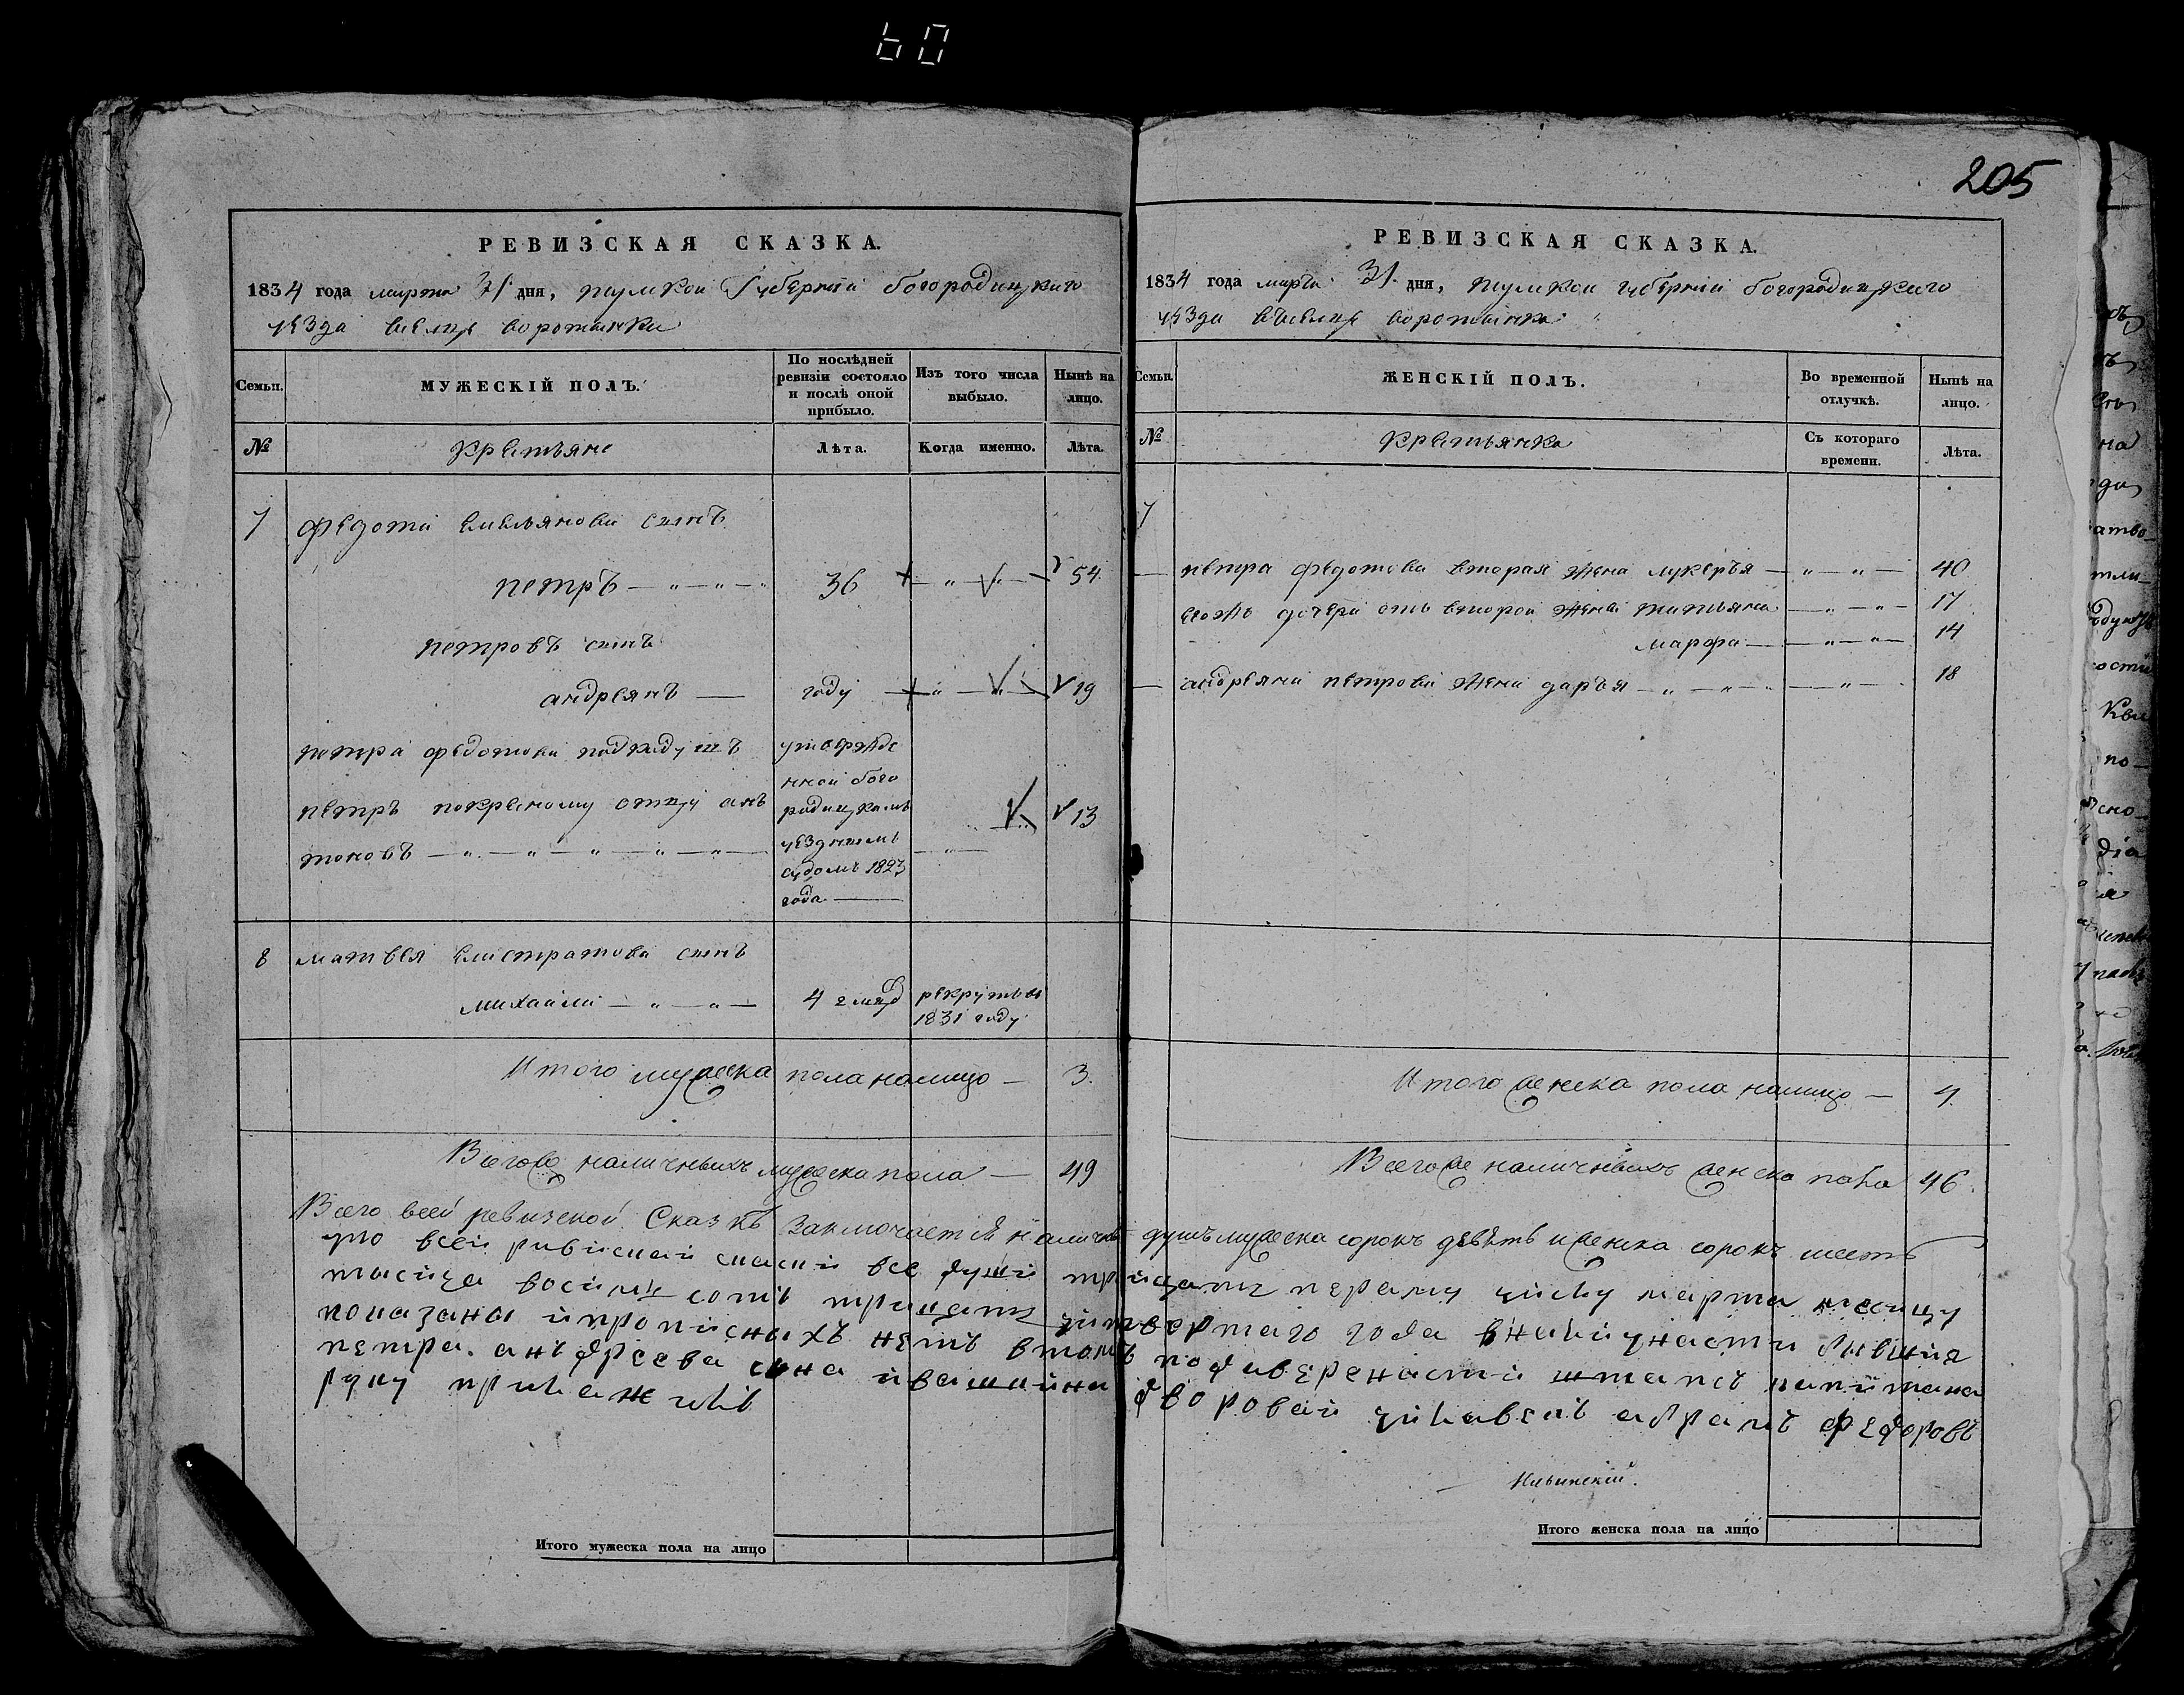 60
205
РЕВИЗСКАЯ СКАЗКА.
1834 года марта 31 дня, тулской Губерніи богородицкаго
уезда селца воротынки
Семьи.
МУЖЕСКІЙ ПОЛЪ.
По послѣдней ревизіи состояло и послѣ оной прибыло.
Изъ того числа выбыло.
Нынѣ на лицо.
№
Крестьяне
Лѣта.
Когда именно.
Лѣта.
7 федота емельянова сынъ
петръ 36 54
петровъ сынъ
андреянъ году 19
петра федотова подкидышъ
петръ покресному отцу ан
тоновъ 13
утвержде
нной бого
родицкимъ
уезднымъ
судомъ 1823
года
8 матвея елистратова сынъ
михаила 4 рекруты в
1831 году
Итого мужеска пола налицо 3.
Всегожъ наличныхъ мужеска пола 49
РЕВИЗСКАЯ СКАЗКА.
1834 года марта 31 дня, тулской губерніи богородицкаго
уезда селца воротынка
Семьи.
ЖЕНСКІЙ ПОЛЪ.
Во временной отлучкѣ.
Нынѣ на лицо.
№
Крестьянка
Съ котораго времени.
Лѣта.
7
петра федотова вторая жена лукерья 40
егожъ дочери отъ второй жены татьяна 17
марфа 14
андреяна петрова жена дарья 18
Итого женска пола налицо 4.
Всегоже наличныхъ женска пола 46.
Всего всей ревизской Сказкѣ Заключается наличныхъ душъ мужеска сорокъ девять и женска сорокъ шесть
что всей все души тритцать перваму числу марта месицу
тысица восимь сотъ тритцать читвертаго года
показаны и прописныхъ нетъ втомъ штапсъ капитана
петра андреева сына дворовай чилавекъ абрамъ федоровъ
руку прилажилъ
Ильинскій.
Итого мужеска пола на лицо
Итого женска пола на лицо